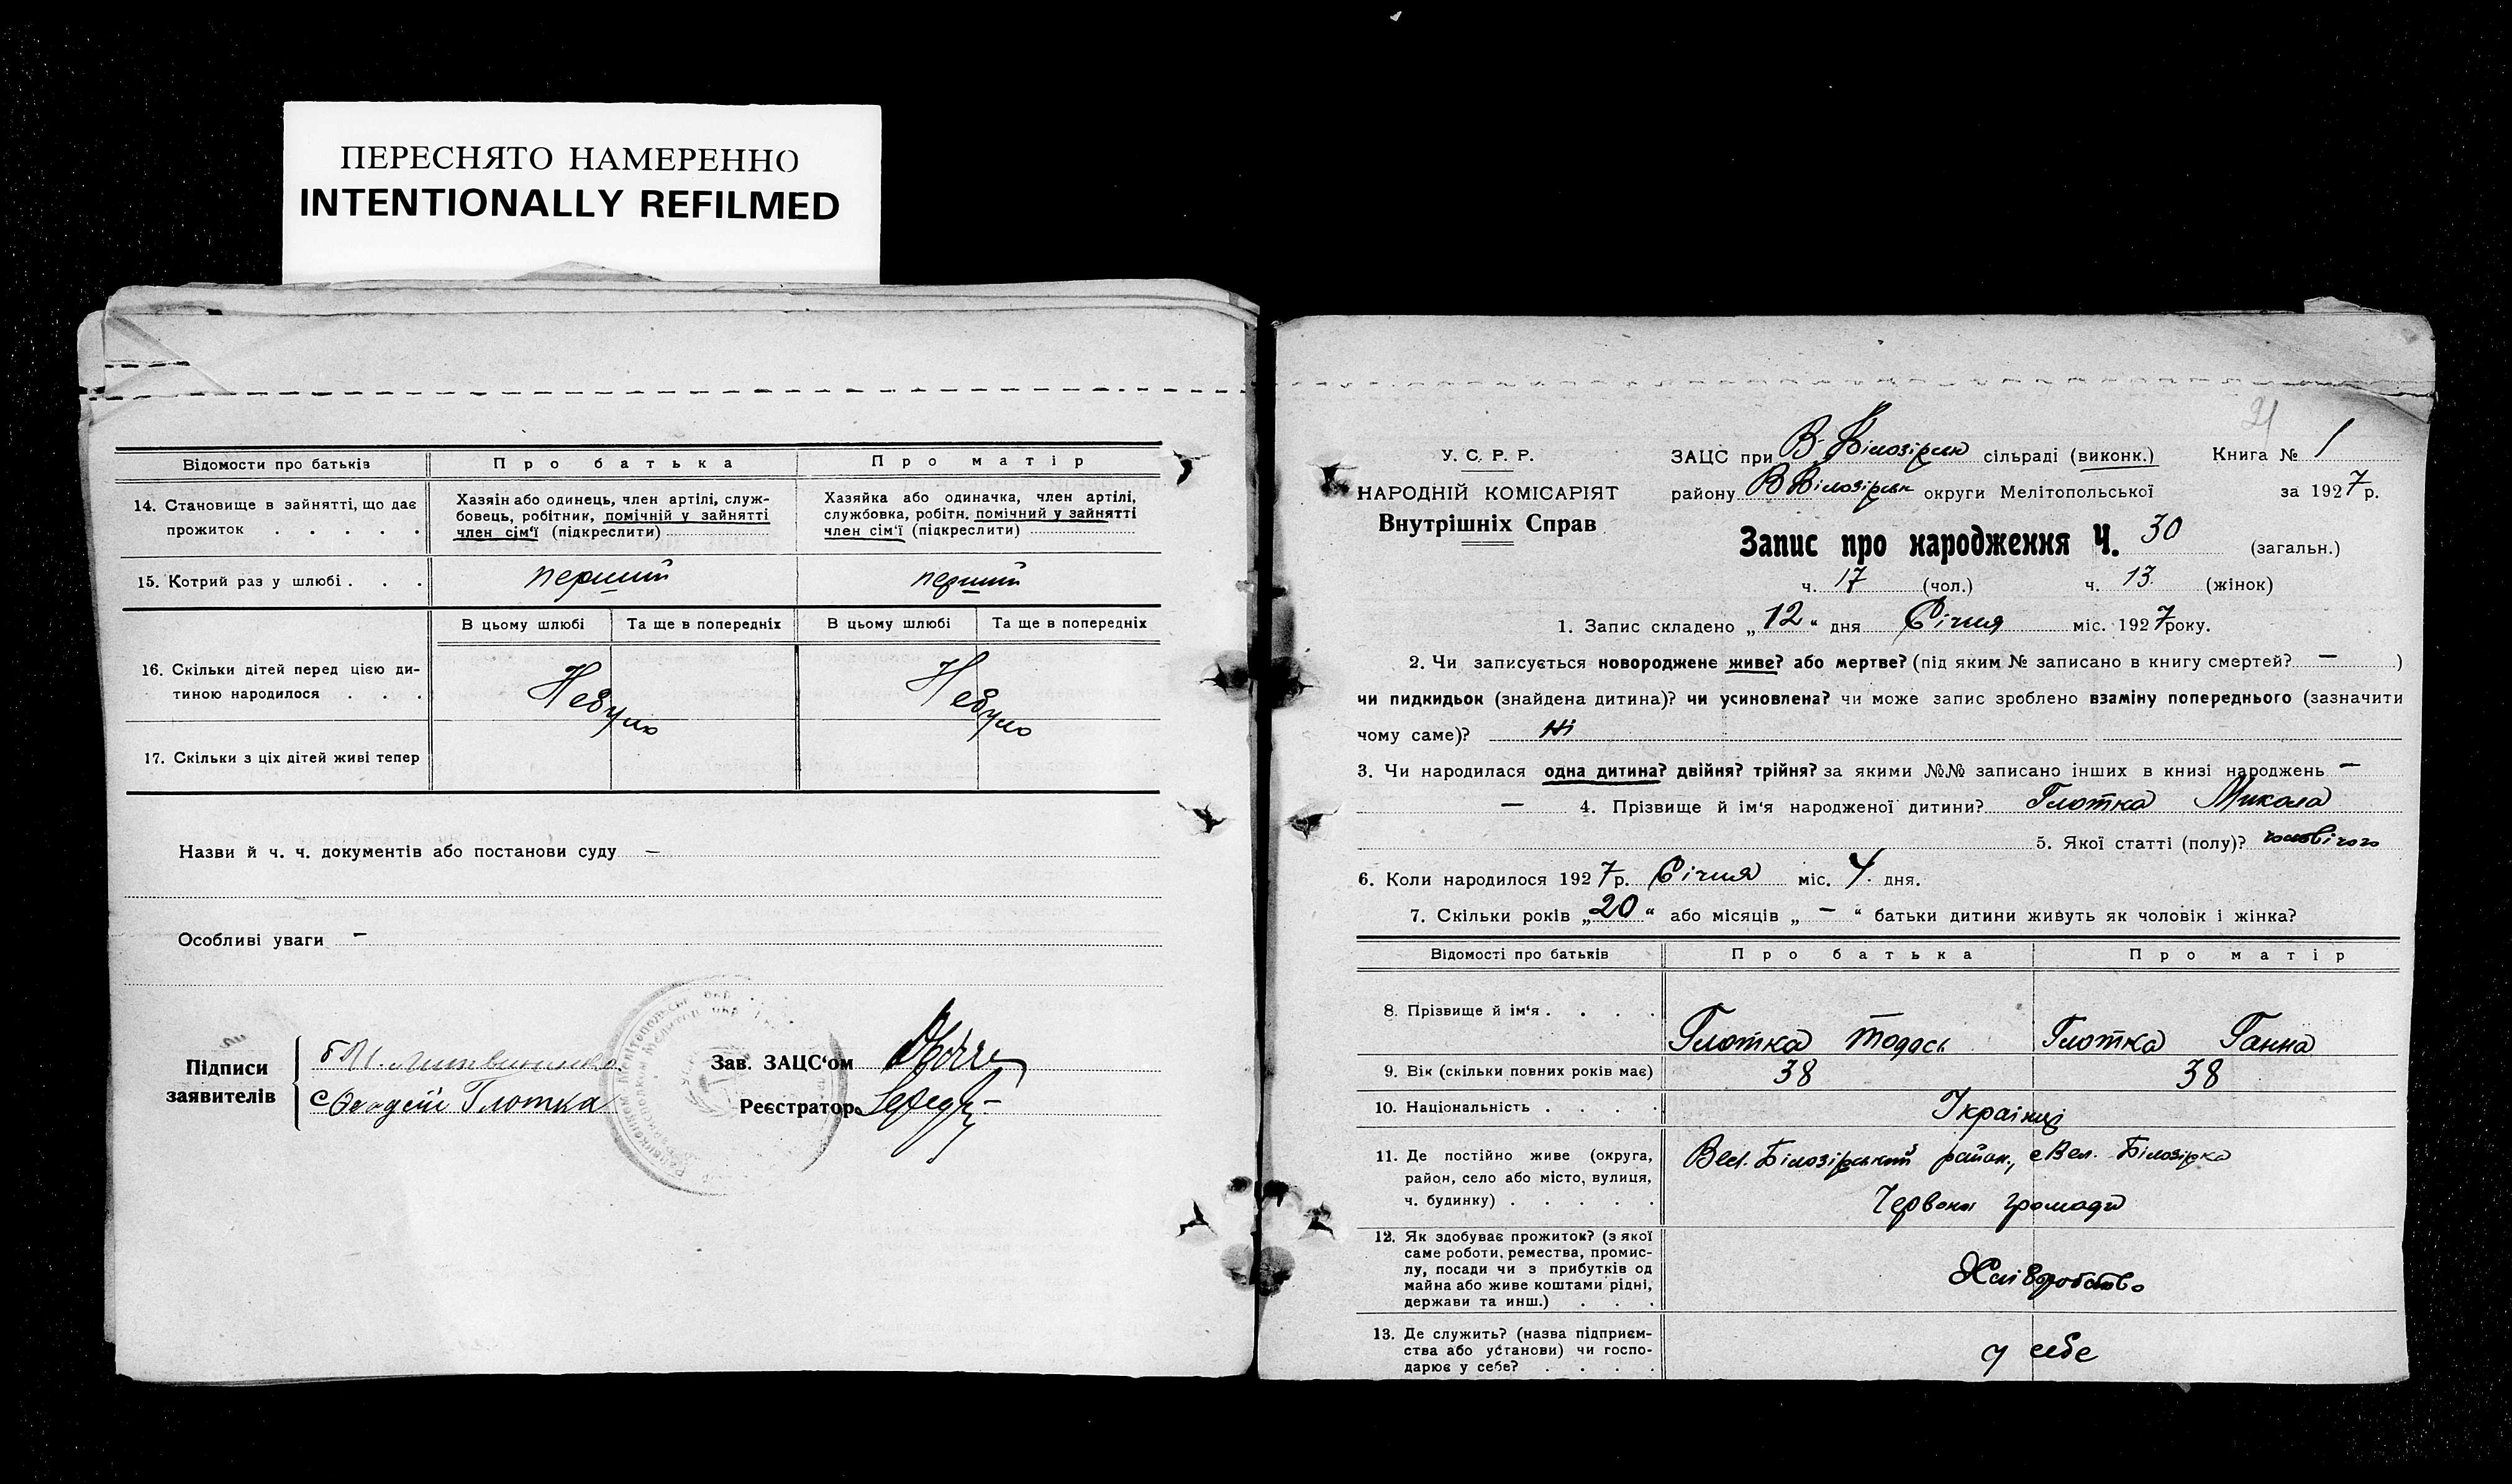 ПЕРЕСНЯТО НАМЕРЕННО
INTENTIONALLY REFILMED
Відомости про батьків Про батька Про матір
14. Становище в зайнятті, що дає прожиток . . . . .
Хазяін або одинець, член артілі, служ-
бовець, робітник, помічній у зайнятті
член сім'ї (підкреслити)
Хазяйка або одиначка, член артілі,
службовка, робітн. помічний у зайнятті
член сім'ї (підкреслити)
15. Котрий раз у шлюбі . . . перший перший
В цьому шлюбі Та ще в попередніх В цьому шлюбі Та ще в попередніх
16. Скільки дітей перед цією ди-
тиною народилося . . . Небуло Небуло
17. Скільки з ціх дітей живі тепер
Назви й ч. ч. документів або постанови суду —
Особливі уваги —
Підписи
заявителів
Глотка
Зав. ЗАЦС'ом
Реєстратор
21
У. С. Р. Р.
НАРОДНІЙ КОМІСАРІЯТ
Внутрішніх Справ
ЗАЦС при В-Білозірськ сільраді (виконк.) Книга № 1
району В Білозірськ округи Мелітопольської за 1927р.
Запис про народження Ч. 30 (загальн.)
ч. 17 (чол.) ч. 13 (жінок)
1. Запис складено „12“ дня Січня міс. 1927року.
2. Чи записується новороджене живе? або мертве? (під яким № записано в книгу смертей? — )
чи пидкидьок (знайдена дитина)? чи усиновлена? чи може запис зроблено взаміну попереднього (зазначити
чому саме)? ні
3. Чи народилася одна дитина? двійня? трійня? за якими №№ записано інших в книзі народжень —
— 4. Прізвище й ім'я народженої дитини? Глотка Микола
5. Якої статті (полу)? чоловічого
6. Коли народилося 1927р. Січня міс. 4. дня.
7. Скільки років „20“ або місяців „ — “ батьки дитини живуть як чоловік і жінка?
Відомості про батьків Про батька Про матір
8. Прізвище й ім'я . . . . Глотка Тодось Глотка Ганна
9. Вік (скільки повних років має) 38 38
10. Національність . . . . Українці
11. Де постійно живе (округа,
район, село або місто, вулиця,
ч. будинку) . . . . .
Вел. Білозірський район., с Вел. Білозірка
Червоної громади
12. Як здобуває прожиток? (з якої
саме роботи, ремества, промис-
лу, посади чи з прибутків од
майна або живе коштами рідні,
держави та инш.) . . .
Хліборобство
13. Де служить? (назва підприєм-
ства або установи) чи госпо-
дарює у себе? . . . .
у себе